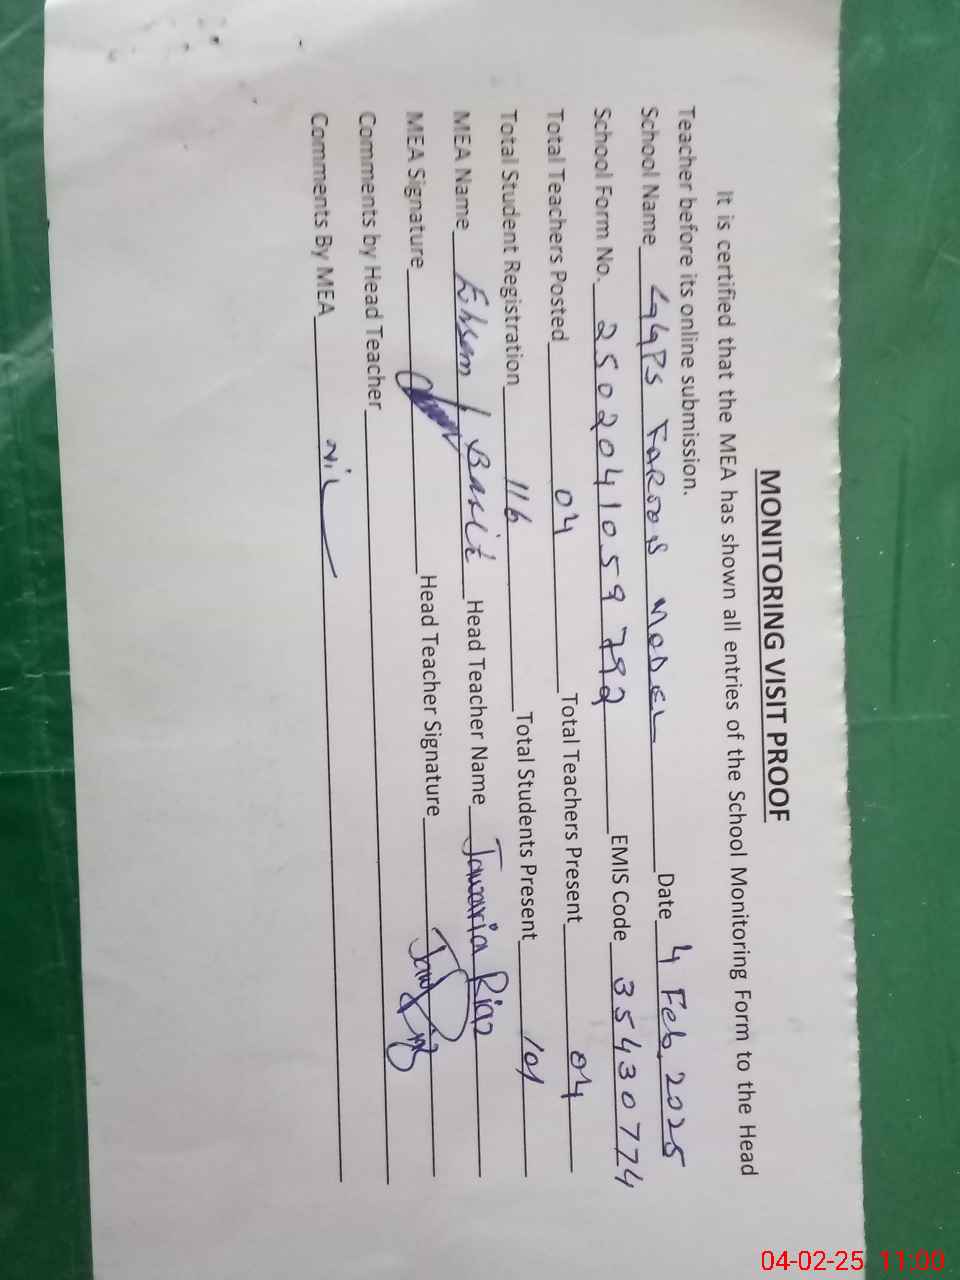 MONITORING VISIT PROOF
It is certified that the MEA has shown all entries of the School Monitoring Form to the Head
Teacher before its online submission.
School Name GGPS FAROOQ MODEL Date 4 Feb, 2025
School Form No. 2502041059792 EMIS Code 35430774
Total Teachers Posted 04 Total Teachers Present 04
Total Student Registration 116 Total Students Present 101
MEA Name Ehsan Basit Head Teacher Name Jawaria Riaz
MEA Signature Head Teacher Signature
Comments by Head Teacher
Comments By MEA Nil
04-02-25 11:00